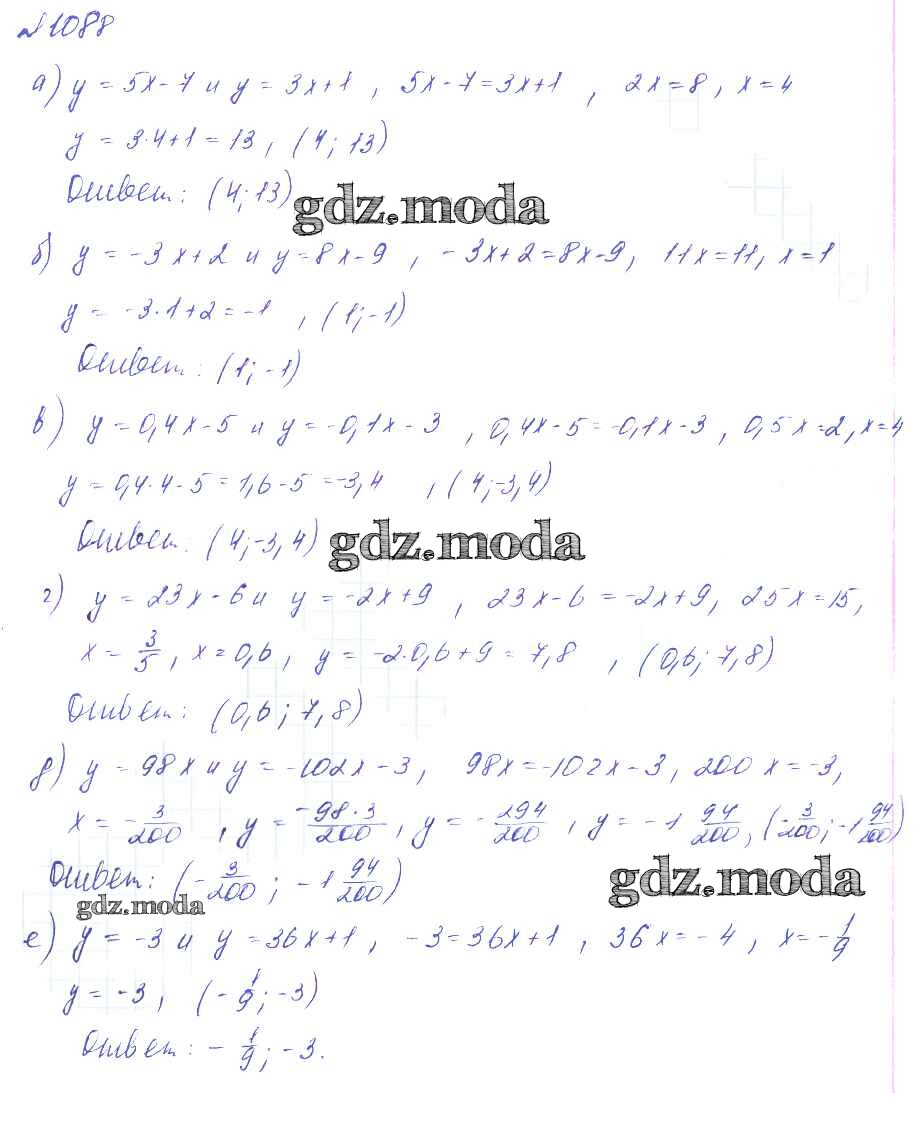 №1088
а) y = 5x-7 и y = 3x+1 , 5x-7=3x+1 , 2x=8, x=4
y = 3·4+1=13, (4; 13)
Ответ: (4;13)
gdz.moda
б) y = -3x+2 и y=8x-9 , -3x+2=8x-9, 11x=11, x=1
y = -3·1+2=-1 , (1;-1)
Ответ: (1;-1)
в) y=0,4x-5 и y=-0,1x-3 , 0,4x-5=-0,1x-3, 0,5x=2, x=4
y=0,4·4-5=1,6-5=-3,4 , (4;-3,4)
Ответ: (4;-3,4)
gdz.moda
г) y=23x-6 и y=-2x+9 , 23x-6=-2x+9, 25x=15,
x = 3/5, x=0,6, y=-2·0,6+9=7,8 , (0,6; 7,8)
Ответ: (0,6; 7,8)
д) y=98x и y=-102x-3, 98x=-102x-3, 200x=-3,
x = -3/200 , y = -98·3/200, y = -294/200 , y=-1 94/200, (-3/200; -1 94/200)
Ответ: (-3/200; -1 94/200)
gdz.moda
gdz.moda
е) y=-3 и y=36x+1, -3=36x+1 , 36x=-4, x=-1/9
y=-3, (-1/9; -3)
Ответ: -1/9; -3.